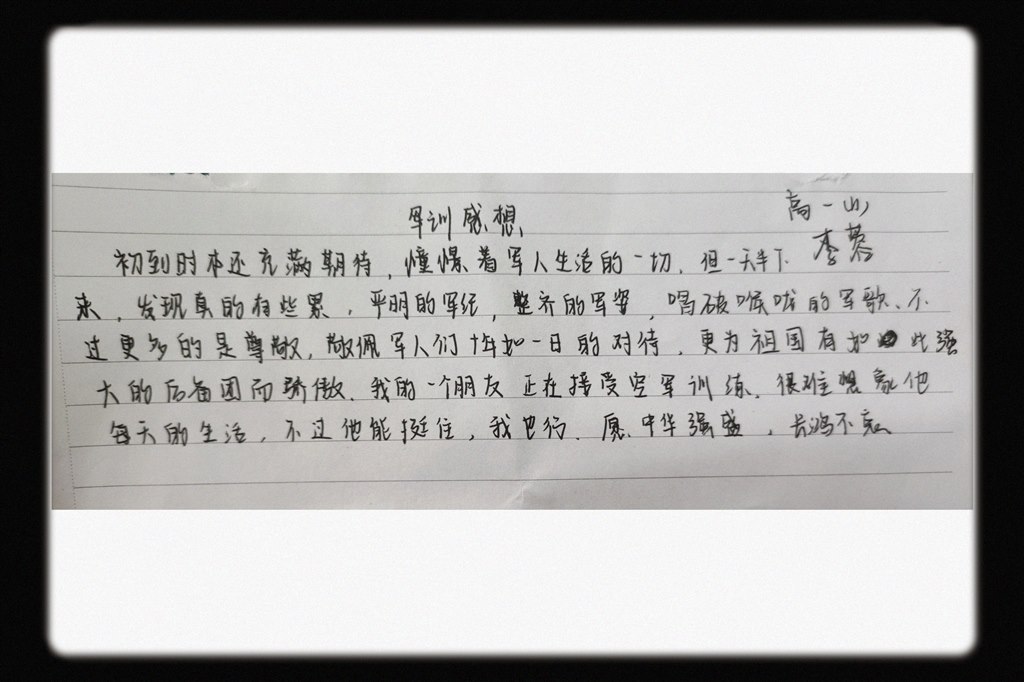 军训感想
高一(4)
李蓉
初到时本还充满期待,憧憬着军人生活的一切.但一天半下
来,发现真的有些累,严明的军纪,整齐的军姿,唱破喉咙的军歌.不
过更多的是尊敬,敬佩军人们十年如一日的对待.更为祖国有如此强
大的后备团而骄傲.我的一个朋友正在接受空军训练.很难想象他
每天的生活,不过他能挺住,我也行.愿中华强盛,长鸿不衰